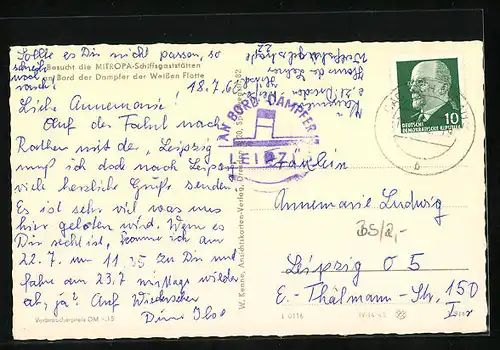 Sollte es Dir nicht passen, so
schreib
noch
vorher!
Besucht die MITROPA-Schiffsgaststätten
an Bord der Dampfer der Weißen Flotte
18.7.62
Liebe Annemarie!
Auf der Fahrt nach
Rathen mit der „Leipzig"
muß ich doch nach Leipzig
viele herzliche Grüße senden.
Es ist sehr viel was uns
hier geboten wird. Wenn es
Dir recht ist, komme ich am
22.7. um 11.35 zu Dir und
fahre am 23.7 mittags wieder
ab, ja? Auf Wiedersehen
Deine Ilse
Verbraucherpreis DM -.15
W. Kenne, Ansichtskarten-Verlag,
AN BORD DAMPFER
LEIPZIG
10
DEUTSCHE
DEMOKRATISCHE REPUBLIK
b
Fräulein
Annemarie Ludwig
BS/2,-
Leipzig O 5
E.-Thälmann-Str. 150
I 0116